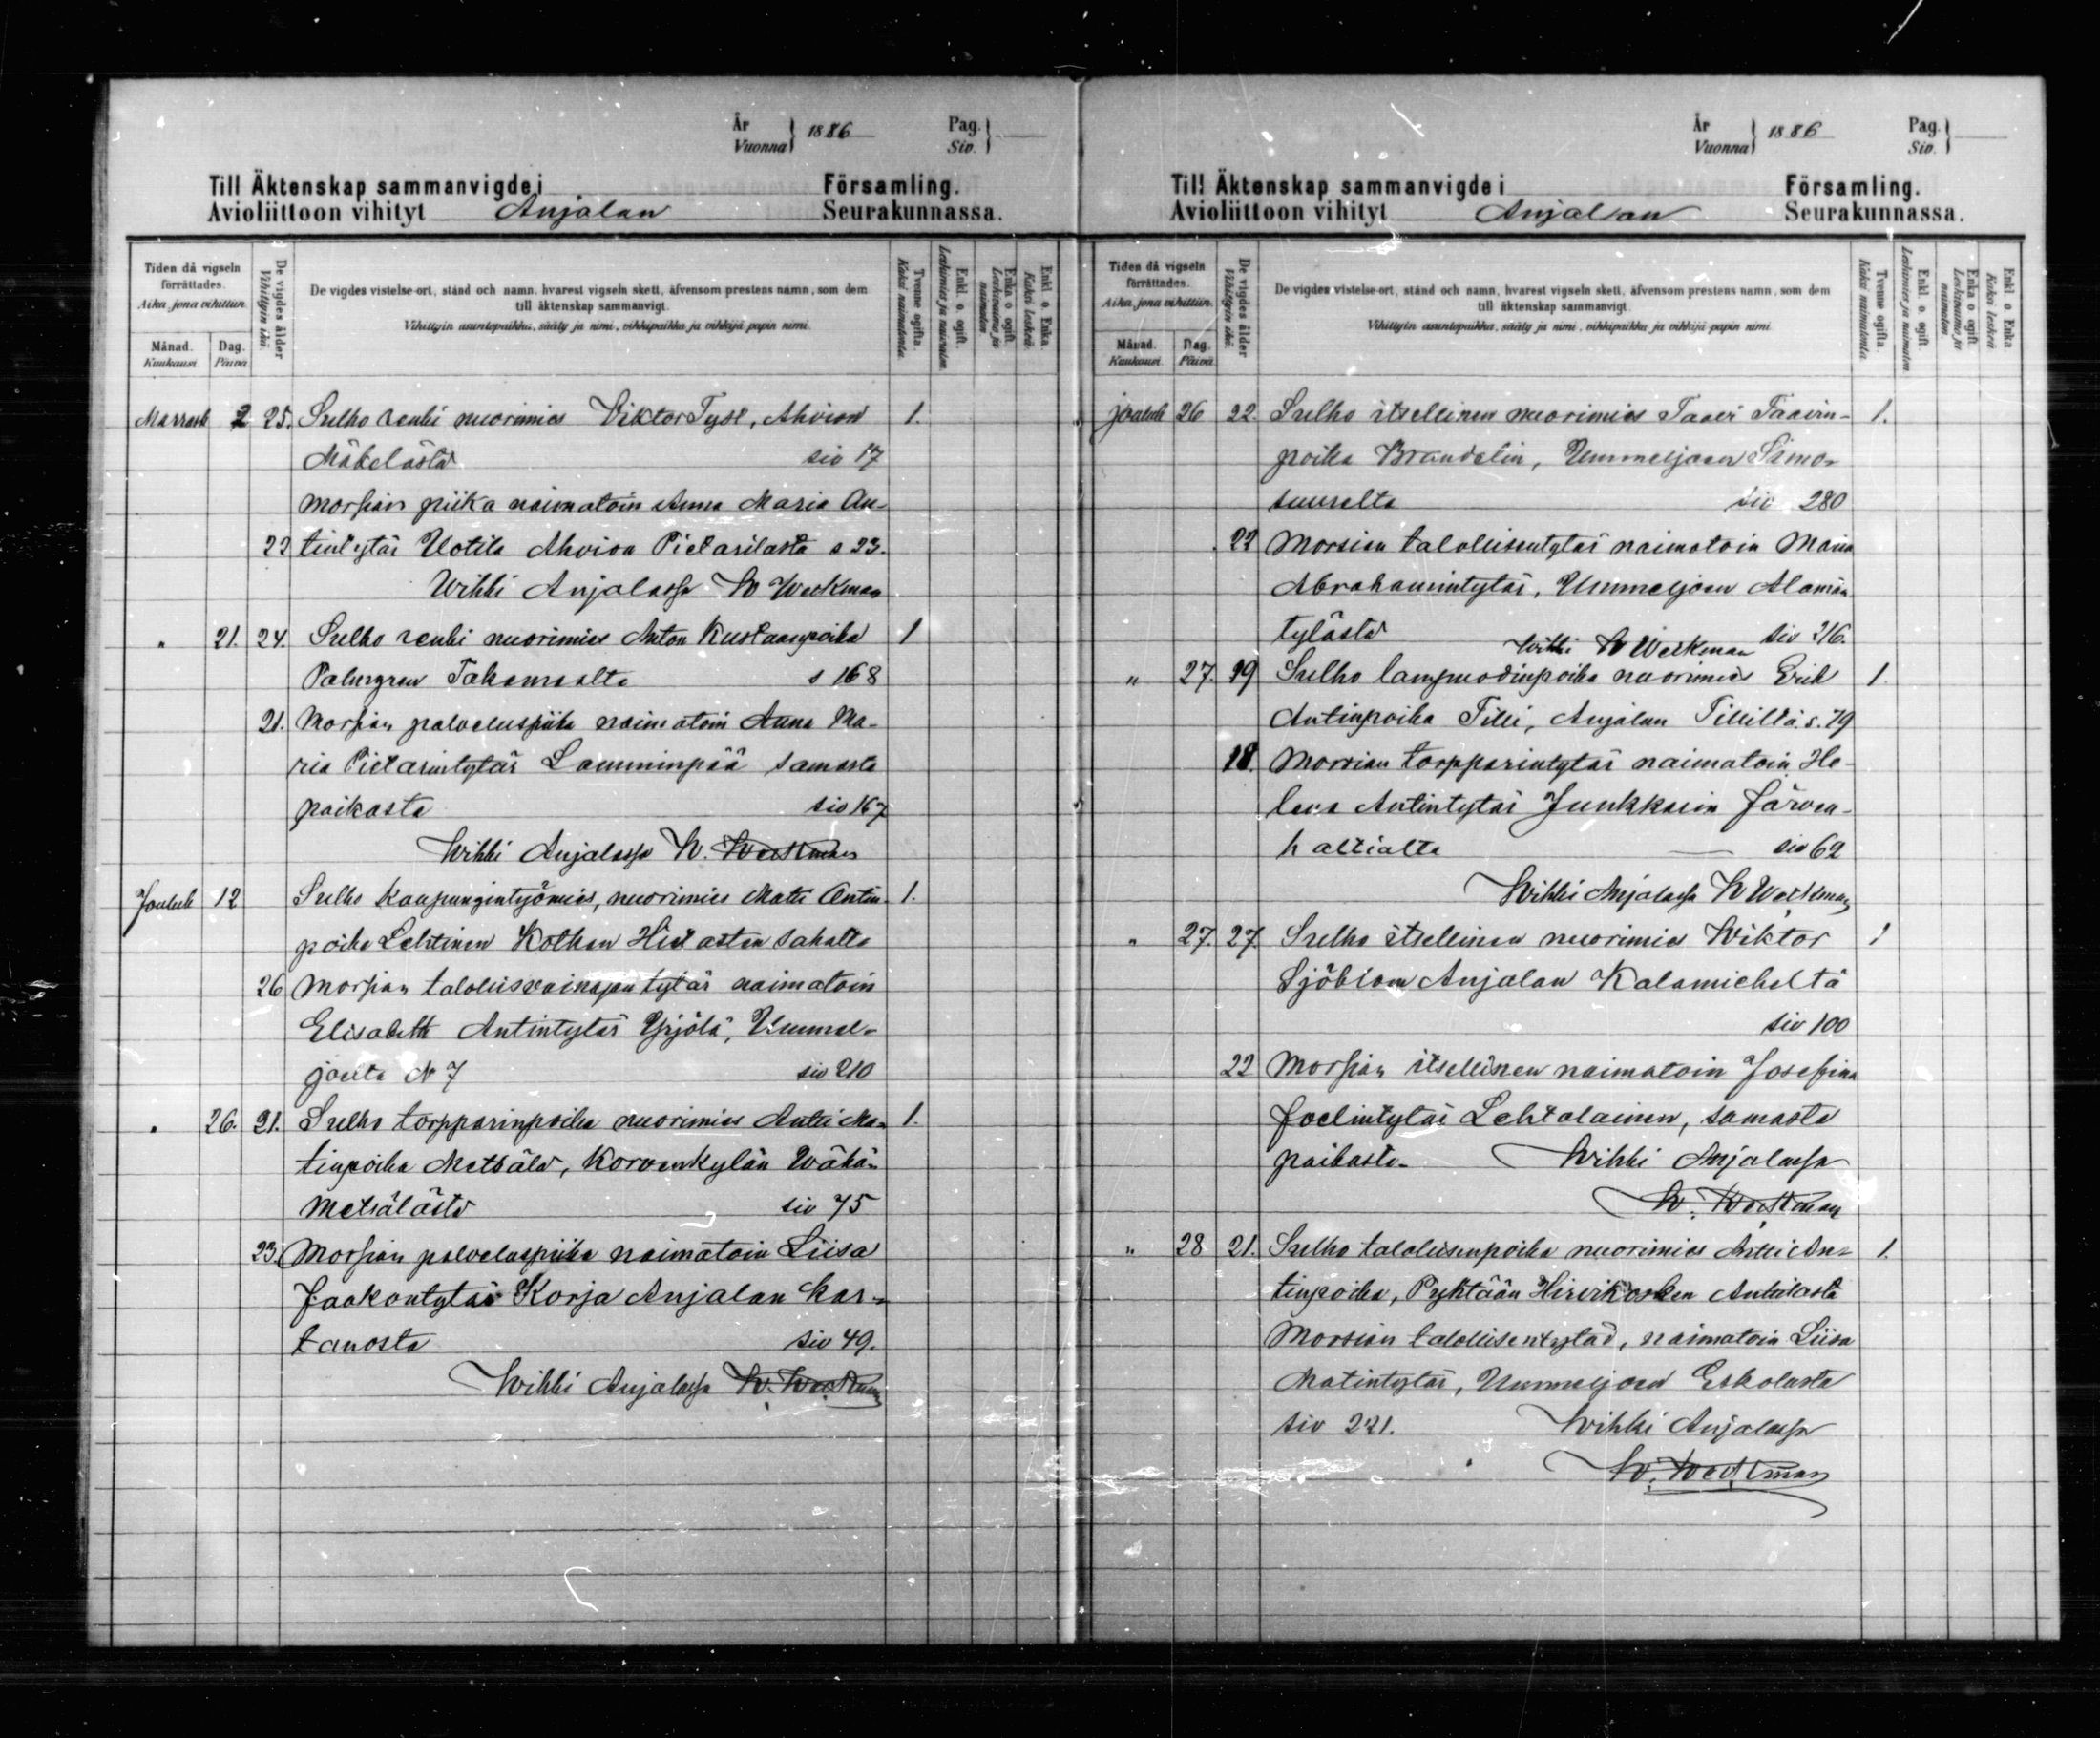 År
Vuonna 1886 Pag.
Siv.
Till Äktenskap sammanvigde i Församling.
Avioliittoon vihityt Anjalan Seurakunnassa.
Tiden då vigseln förrättades.
Aika, jona vihittiin.
Månad. Kuukausi. Dag. Päivä
De vigdes ålder
Vihittyin ikä.
De vigdes vistelse-ort, stånd och namn, hvarest vigseln skett, äfvensom prestens namn, som dem
till äktenskap sammanvigt.
Vihittyin asuntopaikka, sääty ja nimi, vihkipaikka ja vihkijä papin nimi.
Tvenne ogifta.
Kaksi naimatonta.
Enkl. o. ogift.
Leskimies ja naimaton.
Enka o ogift.
Leskivaimo ja naimaton
Enkl. o. Enka.
Kaksi leskeä.
Marrask 2 25. Sulho renki nuorimies Viktor Tysk, Ahvion 1.
Mäkelästä siv 17
Morsian piika naimatoin Anna Maria An-
22 tintytär Uotila Ahvion Pietarilasta s 23.
Wihki Anjalassa W Weckman
" 21. 24. Sulho renki nuorimies Anton Kustaanpoika 1
Palmgren Takamaalta s 168
21. Morsian palveluspiika naimatoin Anna Ma-
ria Pietarintytär Lamminpää samasta
paikasta siv 167
Wihki Anjalassa W. Weckman
Jouluk 12 Sulho Kaupungintyömies, nuorimies Matti Antin- 1.
poika Lehtinen Kotkan Hietasten sahalta
26 Morsian talollisvainajan tytär naimatoin
Elisabeth Antintytär Yrjölä, Ummel-
joelta N 7 siv 210
" 26. 21. Sulho torpparinpoika nuorimies Antti Ma- 1.
tinpoika Metsälä, Korvenkylän Wähä-
Metsälästä siv 75
23. Morsian palveluspiika naimatoin Liisa
Jaakontytär Korja Anjalan kar-
tanosta siv 49.
Wihki Anjalassa W. Weckman
År
Vuonna 1886 Pag.
Siv.
Till Äktenskap sammanvigde i Församling.
Avioliittoon vihityt Anjalan Seurakunnassa.
Tiden då vigseln förrättades.
Aika, jona vihittiin.
Månad. Kuukausi. Dag. Päivä.
De vigdes ålder
Vihittyin ikä.
De vigdes vistelse-ort, stånd och namn, hvarest vigseln skett, äfvensom prestens namn, som dem
till äktenskap sammanvigt.
Vihittyin asuntopaikka, sääty ja nimi, vihkipaikka ja vihkijä papin nimi.
Tvenne ogifta.
Kaksi naimatonta.
Enkl. o. ogift
Leskimies ja naimaton
Enka o ogift
Leskivaimo ja naimaton
Enkl o. Enka
Kaksi leskeä
jouluk 26 22. Sulho itsellinen nuorimies Taavi Taavin- 1.
poika Brandelin, Ummeljoen Simo-
suurelta siv 280
22 Morsian talollisentytär naimatoin Maria
Abrahamintytär, Ummeljoen Alamän-
tylästä siv 216.
Wihki W Weckman
" 27. 19 Sulho lampuodinpoika nuorimies Erik 1.
Antinpoika Tilli, Anjalan Tilliltä s. 79
18. Morsian torpparintytär naimatoin He-
lena Antintytär Junkkarin Järven-
haltialta siv 62
Wihki Anjalassa W Weckman
" 27. 27. Sulho itsellinen nuorimies Wiktor 1
Sjöblom Anjalan Kalamieheltä
siv 100
22 Morsian itsellinen naimatoin Josefina
Joelintytär Lehtolainen, samasta
paikasta. Wihki Anjalassa
W. Weckman
" 28 21. Sulho talollisenpoika nuorimies Antti An- 1.
tinpoika, Pyhtään Hirvikosken Anttilasta
Morsian talollisentytär, naimatoin Liisa
Matintytär, Ummeljoen Eskolasta
siv 221. Wihki Anjalassa
W. Weckman